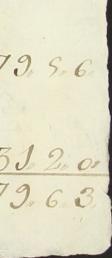 79. 5. 6.
31. 2. 0.
79. 6. 3.